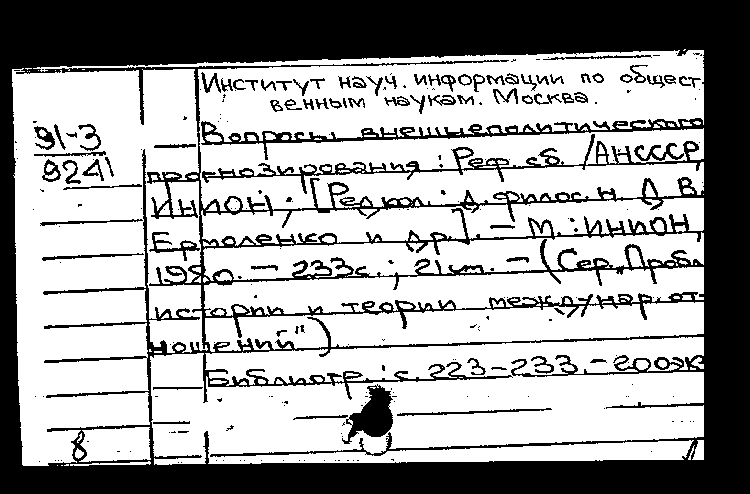 Институт науч. информации по общест-
венным наукам. Москва.
91-3
924
Вопросы внешнеполитического
прогнозирования : Реф. сб. / АН СССР,
ИНИОН ; [Редкол. : д. филос. н. Д. В.
Ермоленко и др.]. – М. : ИНИОН,
1980. – 233 с. ; 21 см. – (Сер. „Пробл.
истории и теории междунар. от-
ношений")
Библиогр. : с. 223–233. – 200 эк
8